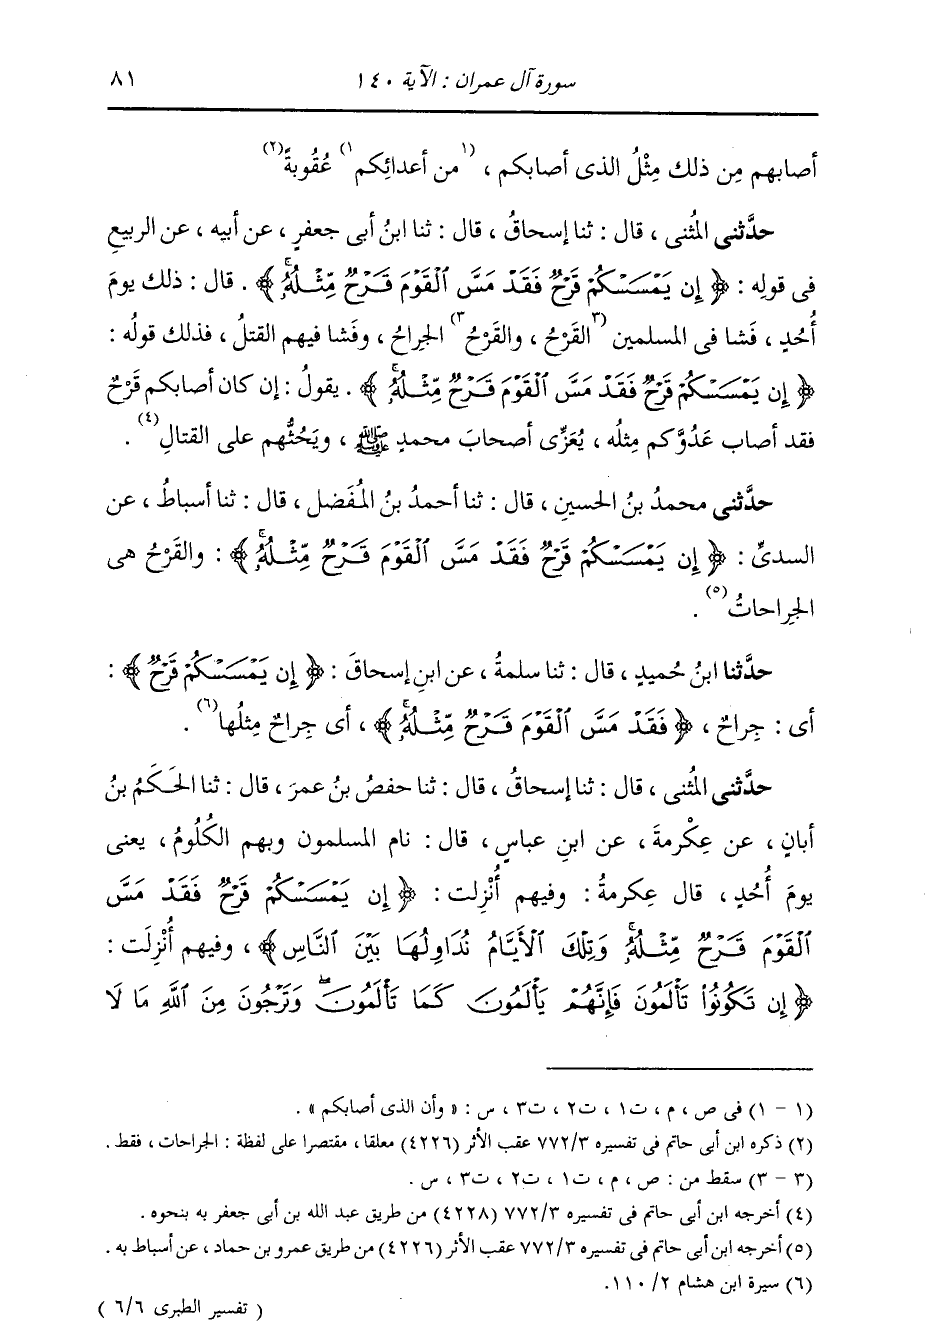 سورة آل عمران : الآية ١٤٠
٨١
أصابهم مِن ذلك مِثْلُ الذى أصابكم ، (١من أعدائِكم١) عُقُوبةً(٢)
حدَّثنى المُثنى ، قال : ثنا إسحاقُ ، قال : ثنا ابنُ أبى جعفرٍ ، عن أبيه ، عن الربيعِ
فى قولِه : ﴿ إِن يَمْسَسْكُمْ قَرْحٌ فَقَدْ مَسَّ الْقَوْمَ قَرْحٌ مِّثْلُهُۥ ﴾ . قال : ذلك يومَ
أُحُدٍ ، فَشا فى المسلمين (٣القَرْحُ ، والقَرْحُ٣) الجِراحُ ، وفَشا فيهم القتلُ ، فذلك قولُه :
﴿ إِن يَمْسَسْكُمْ قَرْحٌ فَقَدْ مَسَّ الْقَوْمَ قَرْحٌ مِّثْلُهُۥ ﴾ . يقولُ : إن كان أصابكم قَرْحٌ
فقد أصاب عَدُوَّكم مِثلُه ، يُعَزِّى أصحابَ محمدٍ ﷺ ، ويَحُثُّهم على القتالِ(٤) .
حدَّثنى محمدُ بنُ الحسينِ ، قال : ثنا أحمدُ بنُ المُفَضلِ ، قال : ثنا أسباطُ ، عن
السدىِّ : ﴿ إِن يَمْسَسْكُمْ قَرْحٌ فَقَدْ مَسَّ الْقَوْمَ قَرْحٌ مِّثْلُهُۥ ﴾ : والقَرْحُ هى
الجِراحاتُ(٥) .
حدَّثنا ابنُ حُميدٍ ، قال : ثنا سلمةُ ، عن ابنِ إسحاقَ : ﴿ إِن يَمْسَسْكُمْ قَرْحٌ ﴾ :
أى : جِراحٌ ، ﴿ فَقَدْ مَسَّ الْقَوْمَ قَرْحٌ مِّثْلُهُۥ ﴾ ، أى جِراحٌ مِثلُها(٦) .
حدَّثنى المُثنى ، قال : ثنا إسحاقُ ، قال : ثنا حفصُ بنُ عمرَ ، قال : ثنا الحَكَمُ بنُ
أبانٍ ، عن عِكْرمةَ ، عن ابنِ عباسٍ ، قال : نام المسلمون وبهم الكُلُومُ ، يعنى
يومَ أُحُدٍ ، قال عِكرمةُ : وفيهم أُنْزِلت : ﴿ إِن يَمْسَسْكُمْ قَرْحٌ فَقَدْ مَسَّ
الْقَوْمَ قَرْحٌ مِّثْلُهُۥ وَتِلْكَ الْأَيَّامُ نُدَاوِلُهَا بَيْنَ النَّاسِ ﴾ ، وفيهم أُنْزِلَت :
﴿ إِن تَكُونُوا تَأْلَمُونَ فَإِنَّهُمْ يَأْلَمُونَ كَمَا تَأْلَمُونَ ۖ وَتَرْجُونَ مِنَ اللَّهِ مَا لَا
(١ - ١) فى ص ، م ، ت١ ، ت٢ ، ت٣ ، س : « وأن الذى أصابكم » .
(٢) ذكره ابن أبى حاتم فى تفسيره ٧٧٢/٣ عقب الأثر (٤٢٢٦) معلقا ، مقتصرا على لفظة : الجراحات ، فقط .
(٣ - ٣) سقط من : ص ، م ، ت١ ، ت٢ ، ت٣ ، س .
(٤) أخرجه ابن أبى حاتم فى تفسيره ٧٧٢/٣ (٤٢٢٨) من طريق عبد الله بن أبى جعفر به بنحوه .
(٥) أخرجه ابن أبى حاتم فى تفسيره ٧٧٢/٣ عقب الأثر (٤٢٢٦) من طريق عمرو بن حماد ، عن أسباط به .
(٦) سيرة ابن هشام ٢/ ١١٠.
( تفسير الطبرى ٦/٦ )